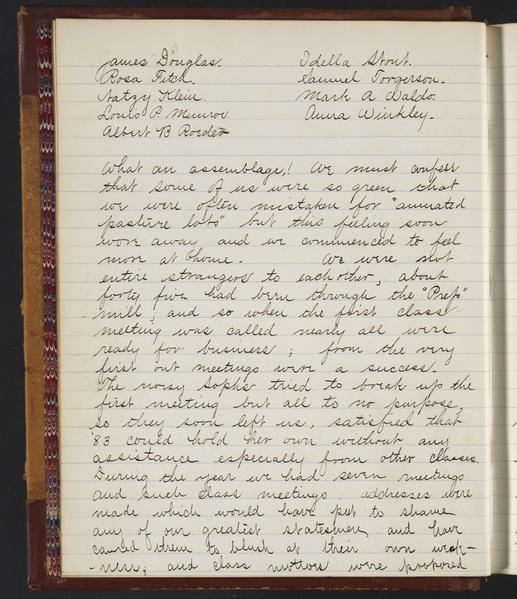 James Douglas.
Rosa Fitch.
Natzy Klein.
Louis P. Munroe.
Albert B Roeder
Idella Stout.
Samuel Torgerson.
Mark A Waldo.
Anna Winkley.
What an assemblage! We must confess
that some of us were so green that
we were often mistaken for "animated
pasture lots" but this feeling soon
wore away and we commenced to feel
more at home. We were not
entire strangers to each other, about
forty five had been through the "Prep"
mill; and so when the first class
meeting was called nearly all were
ready for business; from the very
first our meetings were a success.
The noisy Sophs tried to break up the
first meeting but all to no purpose,
so they soon left us, satisfied that
'83 could hold her own without any
assistance especially from other classes.
During the year we had seven meetings
and such class meetings; addresses were
made which would have put to shame
any of our greatest statesmen, and have
caused them to blush at their own weak-
-ness; and class mottoes were proposed